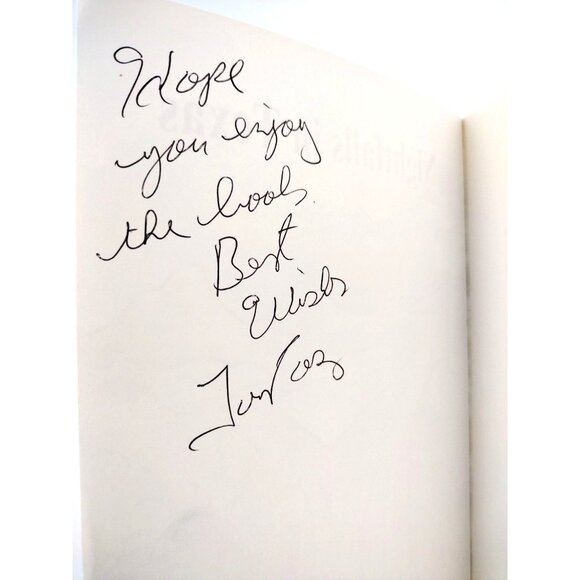 Hope
you enjoy
the book.
Best
Wishs